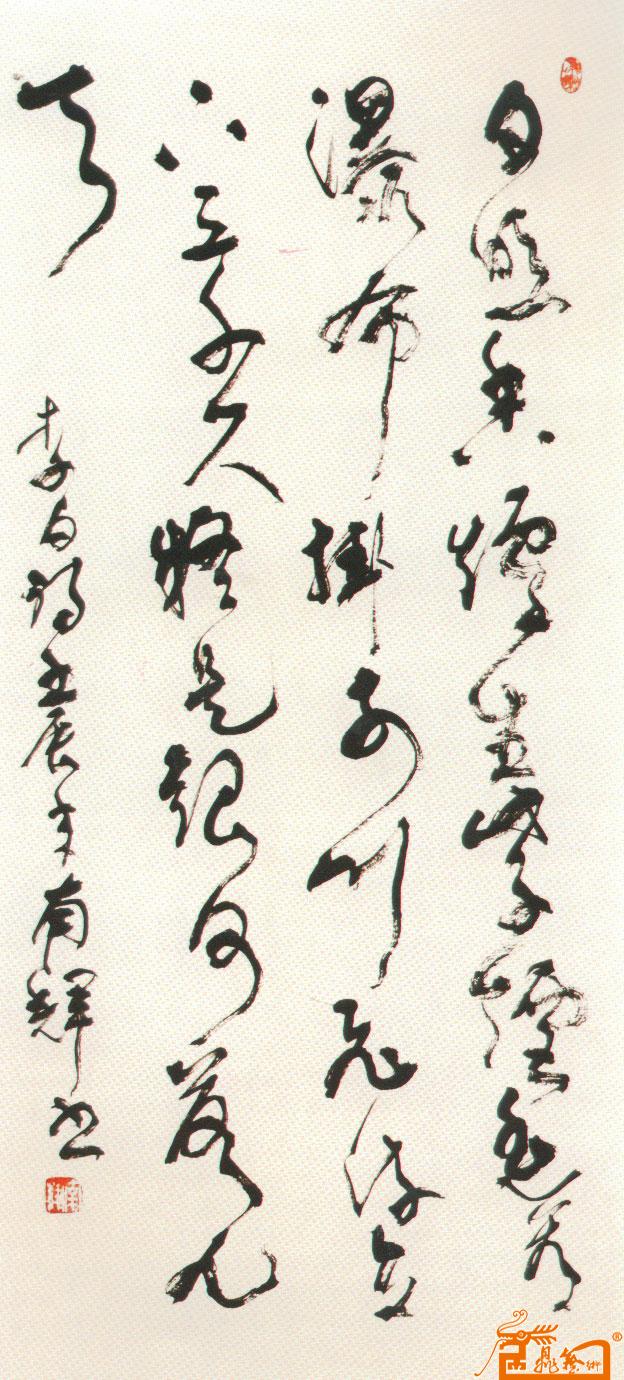 日照香爐生紫煙遥看
瀑布掛前川飛流直
下三千尺疑是銀河落九
天
李白詩壬辰年南輝书